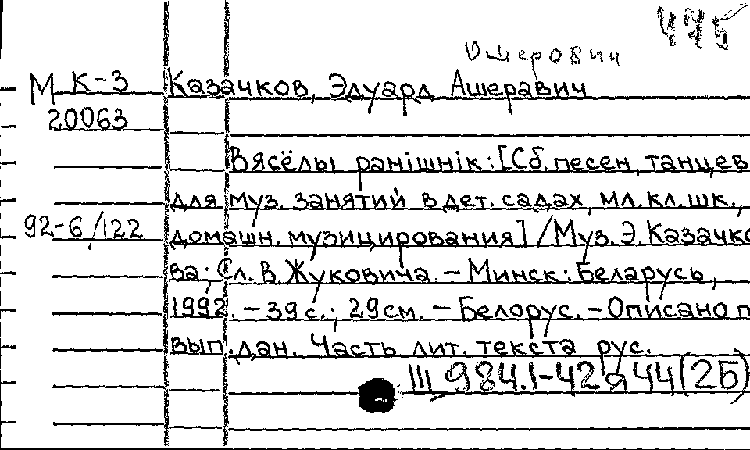 445
Ошерович
М К-3 Казачков, Эдуард Ашеравич
20063
Вясёлы ранішнік: [Сб. песен, танцев
для муз. занятий в дет. садах, мл. кл. шк.,
92-6/122 домашн. музицирования] / Муз. Э. Казачко
ва; Сл. В. Жуковича. – Минск: Беларусь,
1992. – 39 с.; 29 см. – Белорус. – Описано п
вып. дан. Часть лит. текста рус.
Ш 984.1-42я44(2Б)